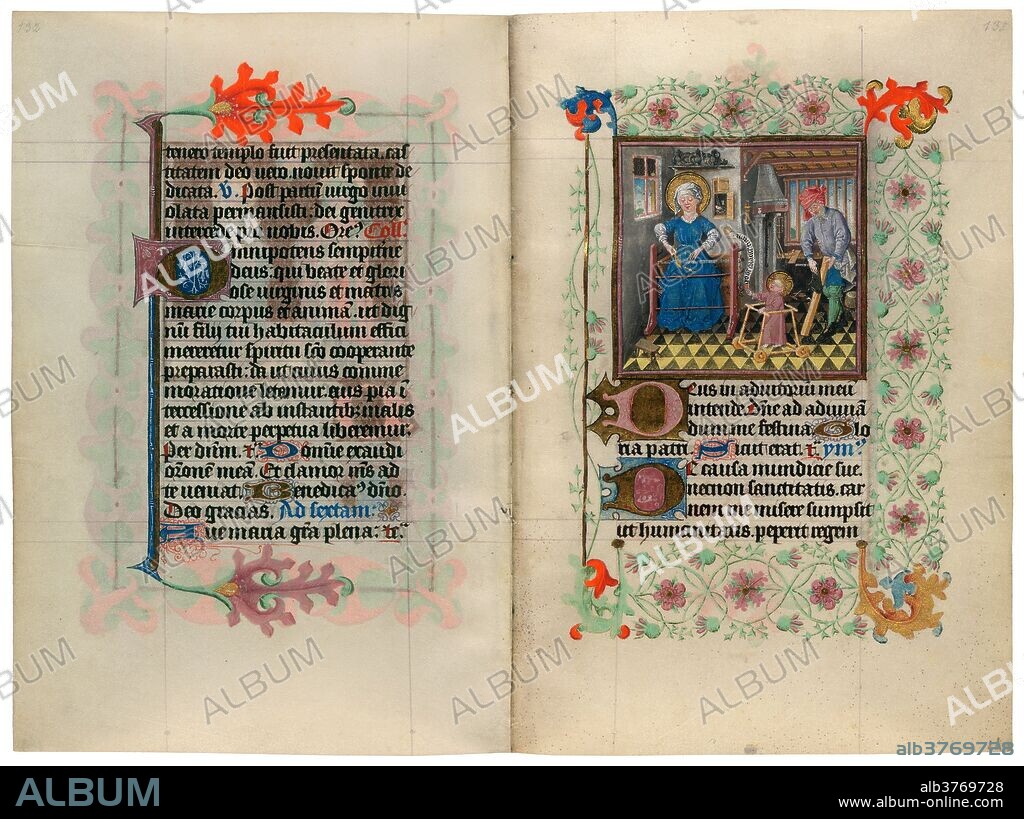 132
tenero templo fuit presentata. cas
titatem deo vero. novit sponte de
dicata. V. Post partū virgo invi
olata permansisti: dei genitrix
intercede pro nobis. Ore? Coll.
Omnipotens sempitne
deus: qui beate et glori
ose virginis et matris
marie corpus et animā. ut dig
nū filij tui habitaculum effici
mereretur spiritu sčo cooperante
preparasti: da ut cuius comme
moratione letamur. eius pia ī
tercessione ab instantibz malis
et a morte perpetua liberemur.
Per dnm. Domine exaudi
orōnē meā. Et clamor m̄s ad
te veniat. Benedicaꝰ dn̄o.
Deo gracias. Ad sextam:
Ave maria grā plena:
Deus in adiutorium meū
intende. Dn̄e ad adiuvā
dum me festina. Glo
ria patri. Sicut erat. ym
De causa mundicie sue
necnon sanctitatis. car
nem me misere sumpsit
ut humani ypis. peperit regem
ALBUM
alb3769728
ALBUM
alb3769728
www.album-online.com